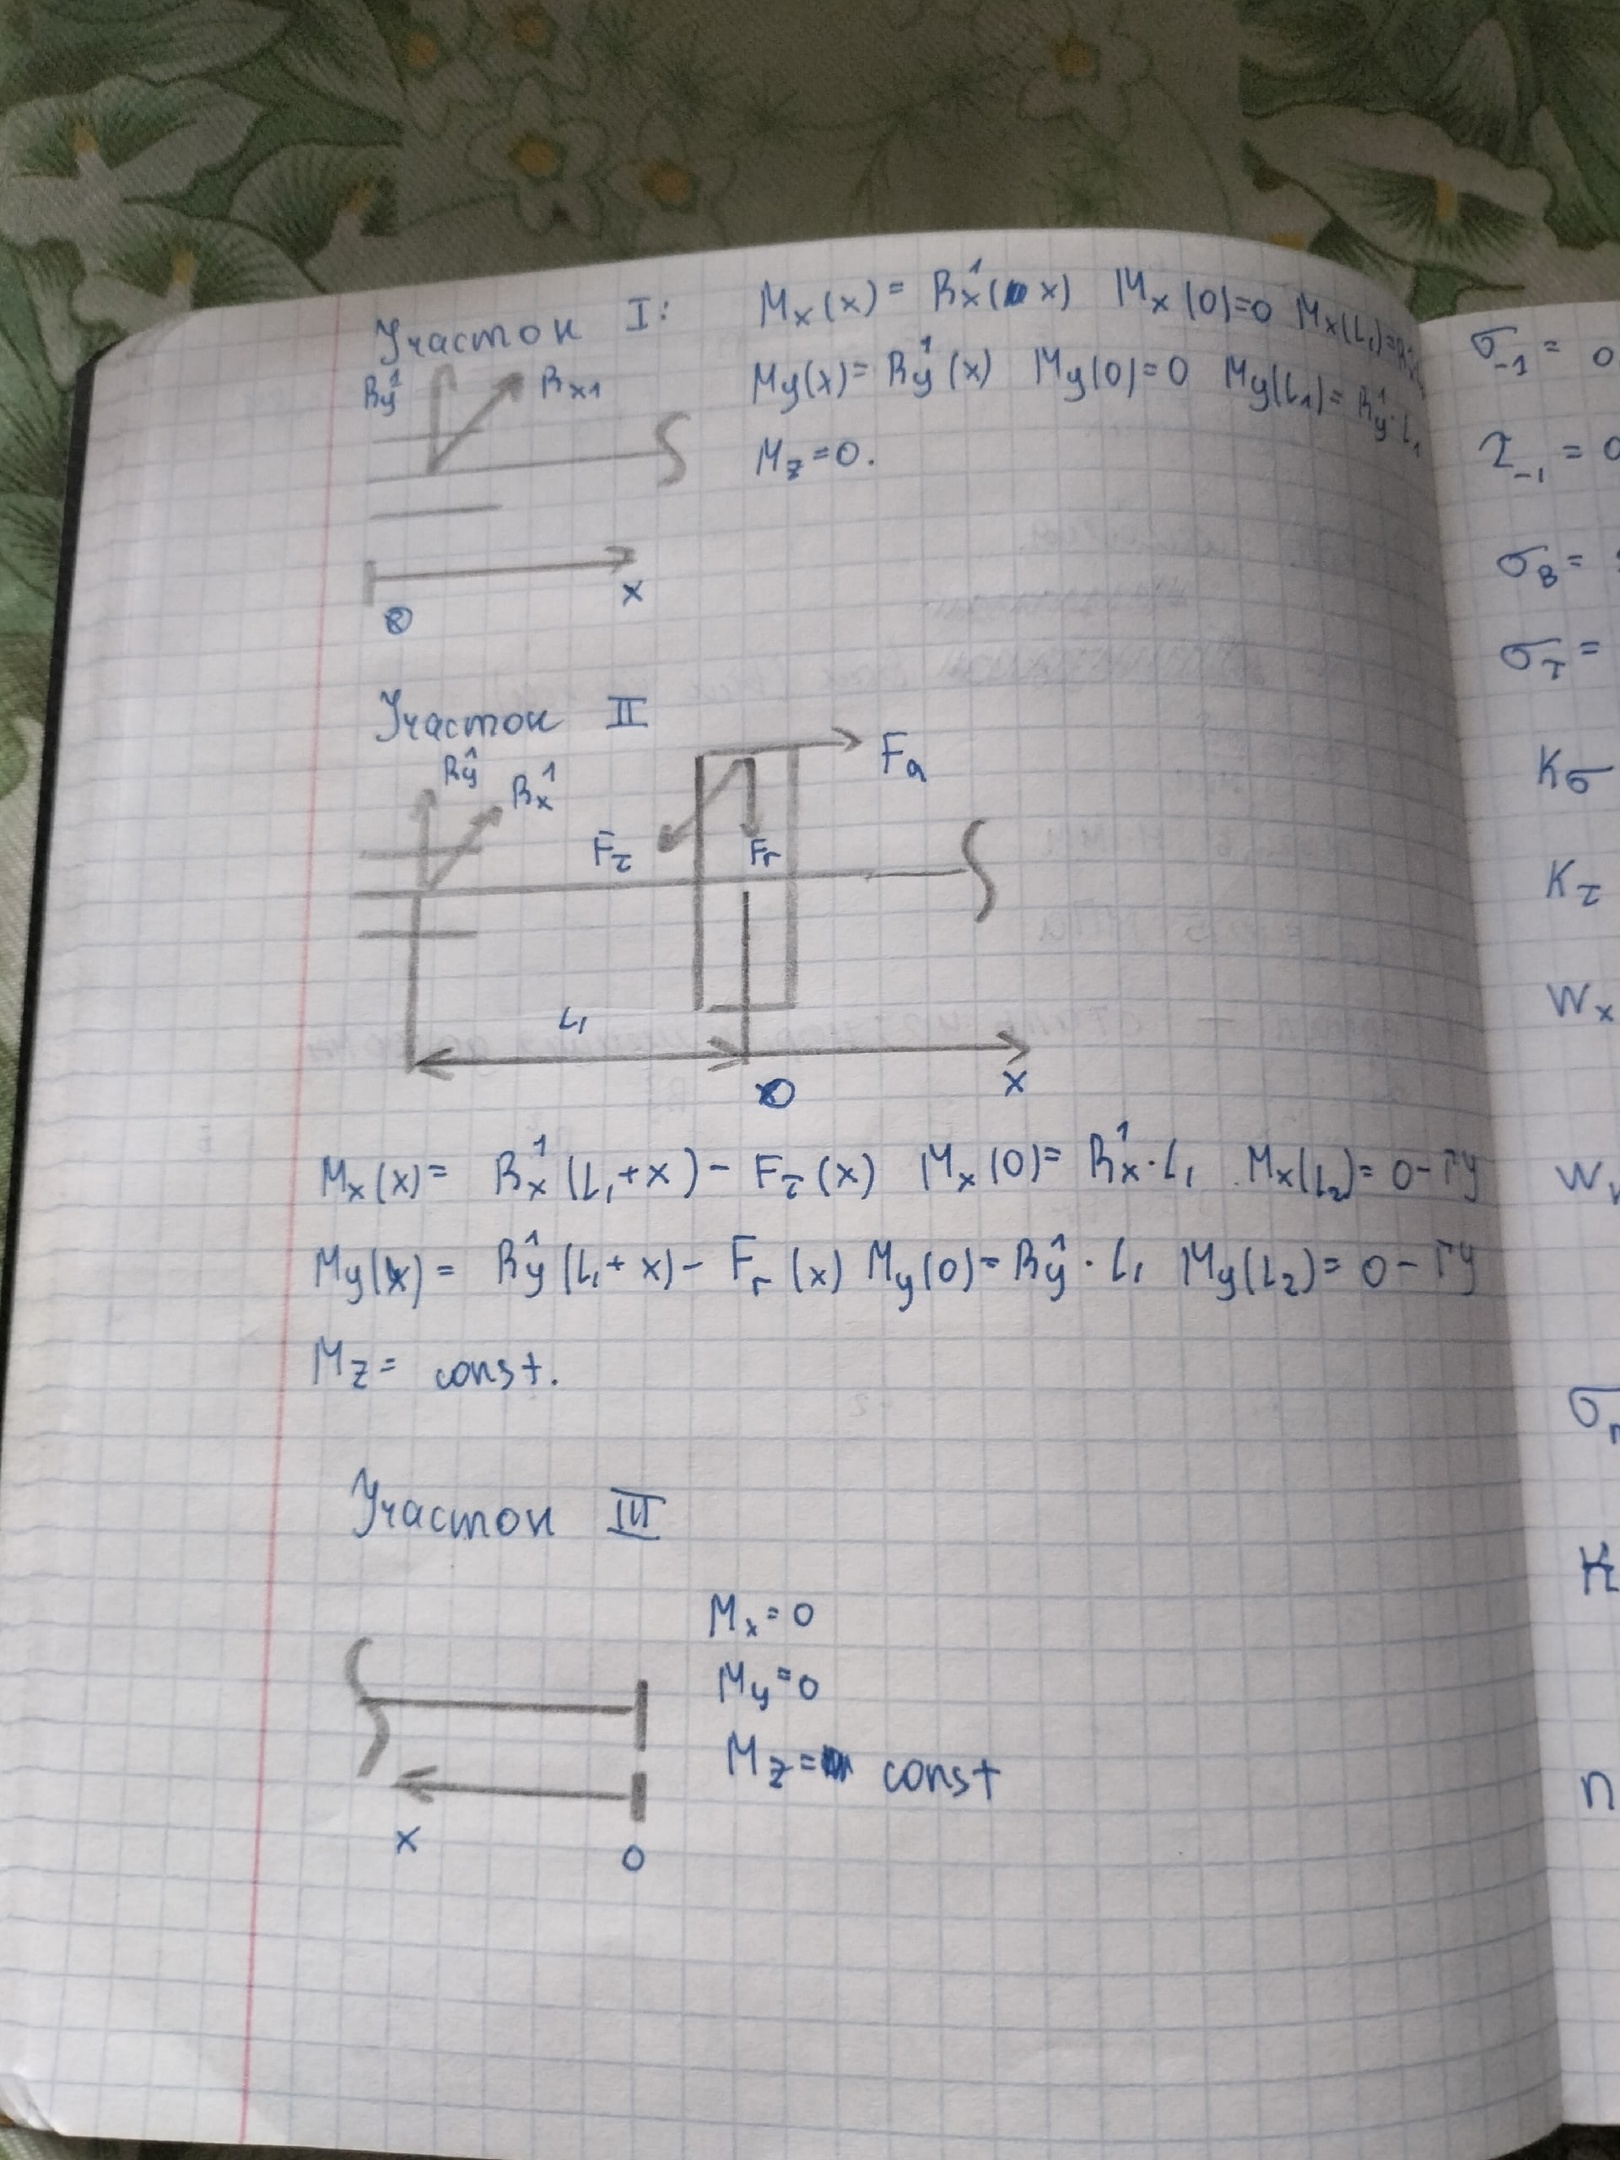 Участок I: Mx(x) = Rx¹(x) Mx(0)=0 Mx(L₁)=
Ry¹ Rx1 My(x) = Ry¹(x) My(0)=0 My(L₁)= Ry¹·L₁
Mz=0.
0 x
Участок II
Ry¹ Rx¹ Fa
Fτ Fr
L₁
0 x
Mx(x) = Rx¹(L₁+x) - Fτ(x) Mx(0) = Rx¹·L₁ Mx(L₂) = 0 - ГУ
My(x) = Ry¹(L₁+x) - Fr(x) My(0) = Ry¹·L₁ My(L₂) = 0 - ГУ
Mz = const.
Участок III
Mx = 0
My = 0
Mz = const
x 0
σ₋₁ = 0
τ₋₁ = 0
σв =
σт =
Kσ
Kτ
Wx
W
σ
K
n